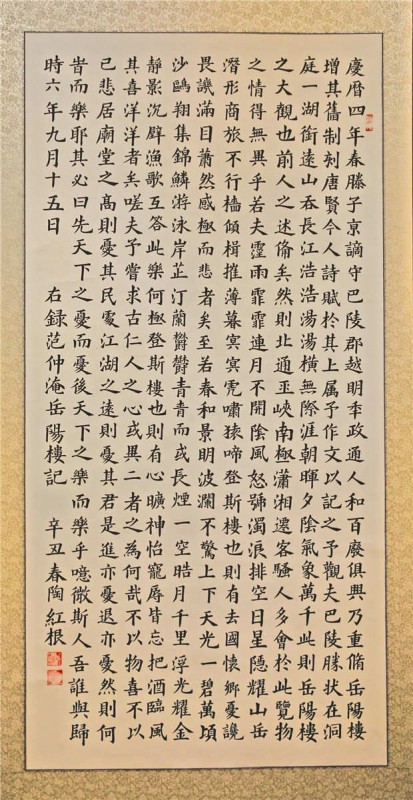 慶曆四年春滕子京謫守巴陵郡越明年政通人和百廢俱興乃重脩岳陽樓
增其舊制刻唐賢今人詩賦於其上属予作文以記之予觀夫巴陵勝狀在洞
庭一湖銜遠山吞長江浩浩湯湯橫無際涯朝暉夕陰氣象萬千此則岳陽樓
之大觀也前人之述備矣然則北通巫峽南極瀟湘遷客騷人多會於此覽物
之情得無異乎若夫霪雨霏霏連月不開陰風怒號濁浪排空日星隱耀山岳
潛形商旅不行檣傾楫摧薄暮冥冥虎嘯猿啼登斯樓也則有去國懷鄉憂讒
畏譏滿目蕭然感極而悲者矣至若春和景明波瀾不驚上下天光一碧萬頃
沙鷗翔集錦鱗游泳岸芷汀蘭鬱鬱青青而或長煙一空皓月千里浮光耀金
靜影沉璧漁歌互答此樂何極登斯樓也則有心曠神怡寵辱皆忘把酒臨風
其喜洋洋者矣嗟夫予嘗求古仁人之心或異二者之為何哉不以物喜不以
己悲居廟堂之高則憂其民處江湖之遠則憂其君是進亦憂退亦憂然則何
旹而樂耶其必曰先天下之憂而憂後天下之樂而樂乎噫微斯人吾誰與歸
時六年九月十五日 右錄范仲淹岳陽樓記 辛丑春陶紅根